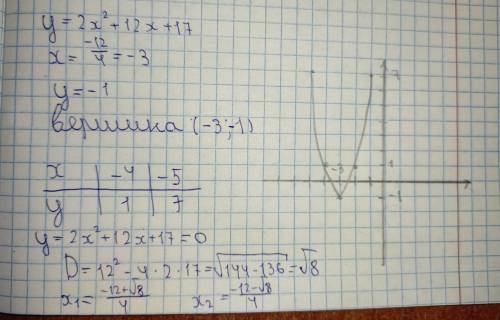 y = 2x² + 12x + 17
x = -12/4 = -3
y = -1
вершина (-3; -1)
x | -4 | -5
y | 1 | 7
y = 2x² + 12x + 17 = 0
D = 12² - 4 · 2 · 17 = √144 - 136 = √8
x₁ = -12+√8/4 x₂ = -12-√8/4
7
-3 1
-1